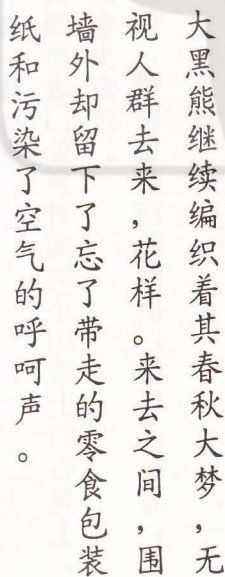 大黑熊继续编织着其春秋大梦，无
视人群去来，花样。来去之间，围
墙外却留下了忘了带走的零食包装
纸和污染了空气的呼呵声。